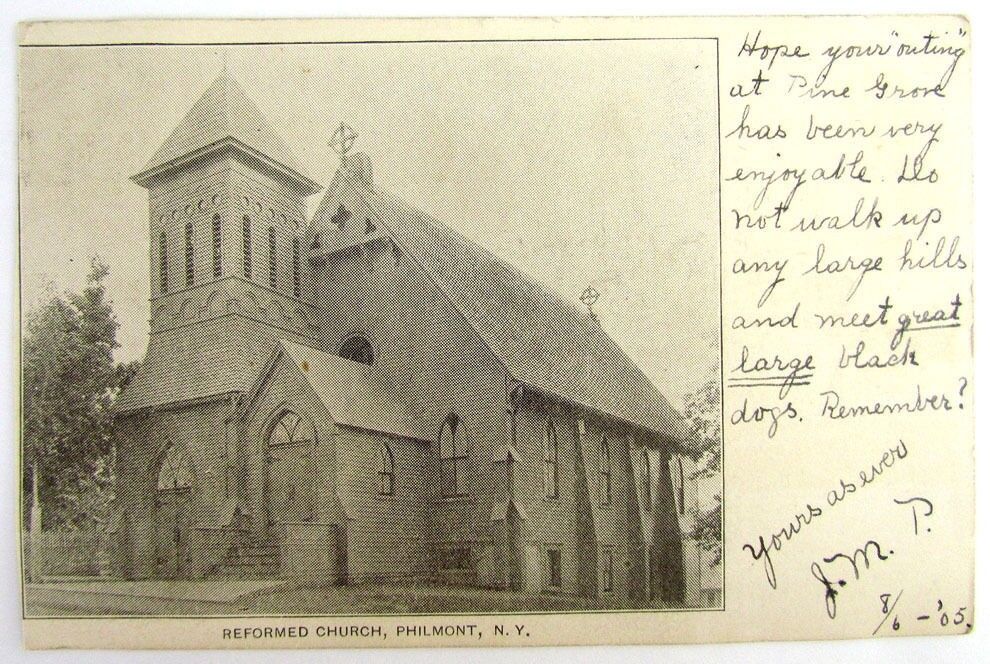 Hope your "outing"
at Pine Grove
has been very
enjoyable. Do
not walk up
any large hills
and meet great
large black
dogs. Remember?
Yours as ever
J. M. P.
8/6 - '05.
REFORMED CHURCH, PHILMONT, N. Y.